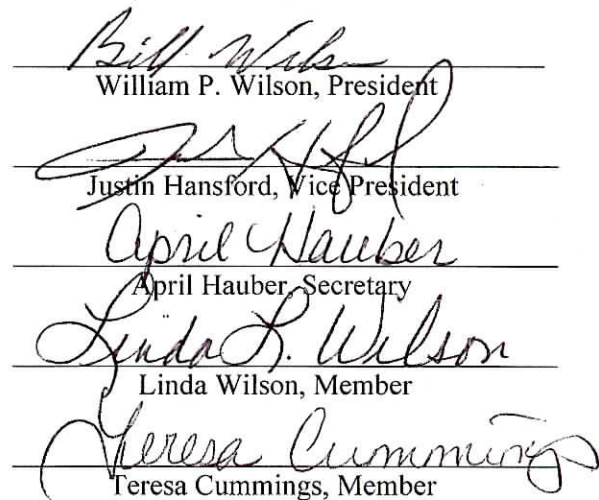 Bill Wilson
William P. Wilson, President
Justin Hansford, Vice President
April Hauber
April Hauber, Secretary
Linda L. Wilson
Linda Wilson, Member
Teresa Cummings
Teresa Cummings, Member